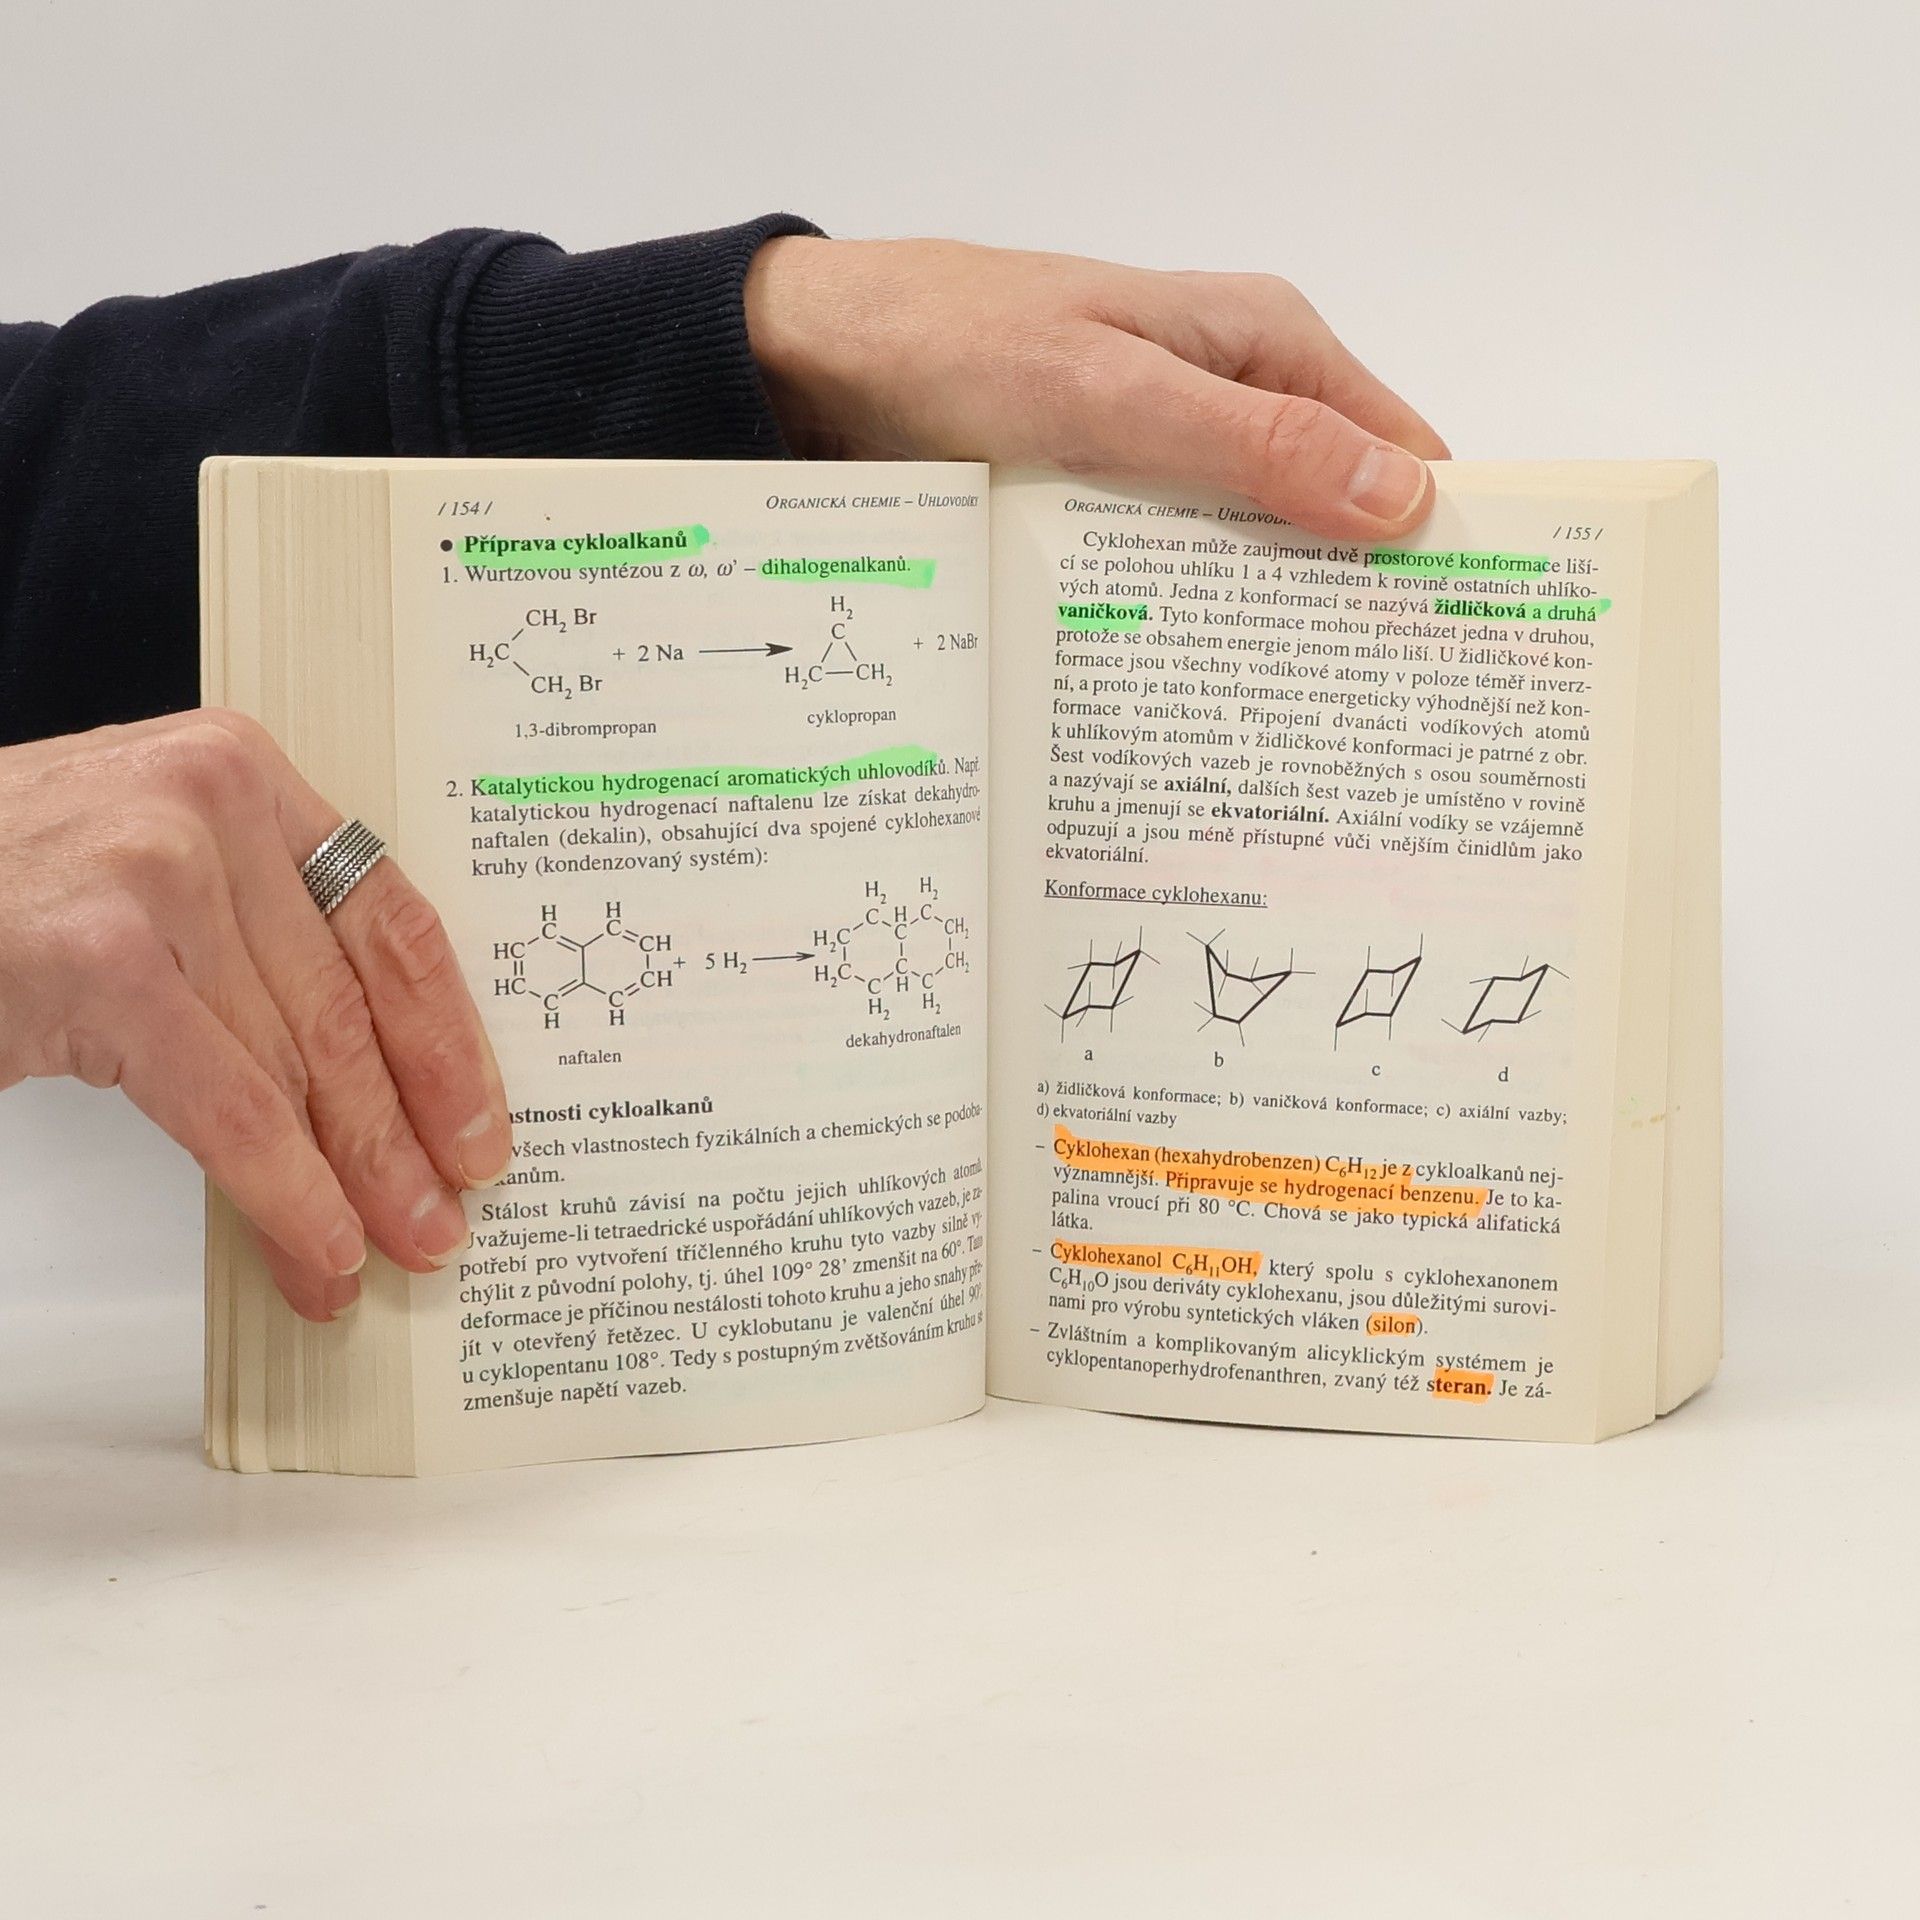 / 154 /
ORGANICKÁ CHEMIE – UHLOVODÍKY
● Příprava cykloalkanů
1. Wurtzovou syntézou z ω, ω’ – dihalogenalkanů.
CH₂ Br
H₂C
CH₂ Br
+ 2 Na
H₂
C
H₂C—CH₂
+ 2 NaBr
1,3-dibrompropan
cyklopropan
2. Katalytickou hydrogenací aromatických uhlovodíků. Např.
katalytickou hydrogenací naftalenu lze získat dekahydro-
naftalen (dekalin), obsahující dva spojené cyklohexanové
kruhy (kondenzovaný systém):
H H
C C
HC CH
HC CH
C C
H H
+ 5 H₂
H₂ H₂
C H C
H₂C C CH₂
H₂C C CH₂
C H C
H₂ H₂
naftalen
dekahydronaftalen
astnosti cykloalkanů
všech vlastnostech fyzikálních a chemických se podoba-
kanům.
Stálost kruhů závisí na počtu jejich uhlíkových atomů.
Uvažujeme-li tetraedrické uspořádání uhlíkových vazeb, je za-
potřebí pro vytvoření tříčlenného kruhu tyto vazby silně vy-
chýlit z původní polohy, tj. úhel 109° 28’ zmenšit na 60°. Tato
deformace je příčinou nestálosti tohoto kruhu a jeho snahy pře-
jít v otevřený řetězec. U cyklobutanu je valenční úhel 90°,
u cyklopentanu 108°. Tedy s postupným zvětšováním kruhu se
zmenšuje napětí vazeb.
ORGANICKÁ CHEMIE – UHLOVOD
/ 155 /
Cyklohexan může zaujmout dvě prostorové konformace liší-
cí se polohou uhlíku 1 a 4 vzhledem k rovině ostatních uhlíko-
vých atomů. Jedna z konformací se nazývá židličková a druhá
vaničková. Tyto konformace mohou přecházet jedna v druhou,
protože se obsahem energie jenom málo liší. U židličkové kon-
formace jsou všechny vodíkové atomy v poloze téměř inverz-
ní, a proto je tato konformace energeticky výhodnější než kon-
formace vaničková. Připojení dvanácti vodíkových atomů
k uhlíkovým atomům v židličkové konformaci je patrné z obr.
Šest vodíkových vazeb je rovnoběžných s osou souměrnosti
a nazývají se axiální, dalších šest vazeb je umístěno v rovině
kruhu a jmenují se ekvatoriální. Axiální vodíky se vzájemně
odpuzují a jsou méně přístupné vůči vnějším činidlům jako
ekvatoriální.
Konformace cyklohexanu:
a b c d
a) židličková konformace; b) vaničková konformace; c) axiální vazby;
d) ekvatoriální vazby
– Cyklohexan (hexahydrobenzen) C₆H₁₂ je z cykloalkanů nej-
významnější. Připravuje se hydrogenací benzenu. Je to ka-
palina vroucí při 80 °C. Chová se jako typická alifatická
látka.
– Cyklohexanol C₆H₁₁OH, který spolu s cyklohexanonem
C₆H₁₀O jsou deriváty cyklohexanu, jsou důležitými surovi-
nami pro výrobu syntetických vláken (silon).
– Zvláštním a komplikovaným alicyklickým systémem je
cyklopentanoperhydrofenanthren, zvaný též steran. Je zá-